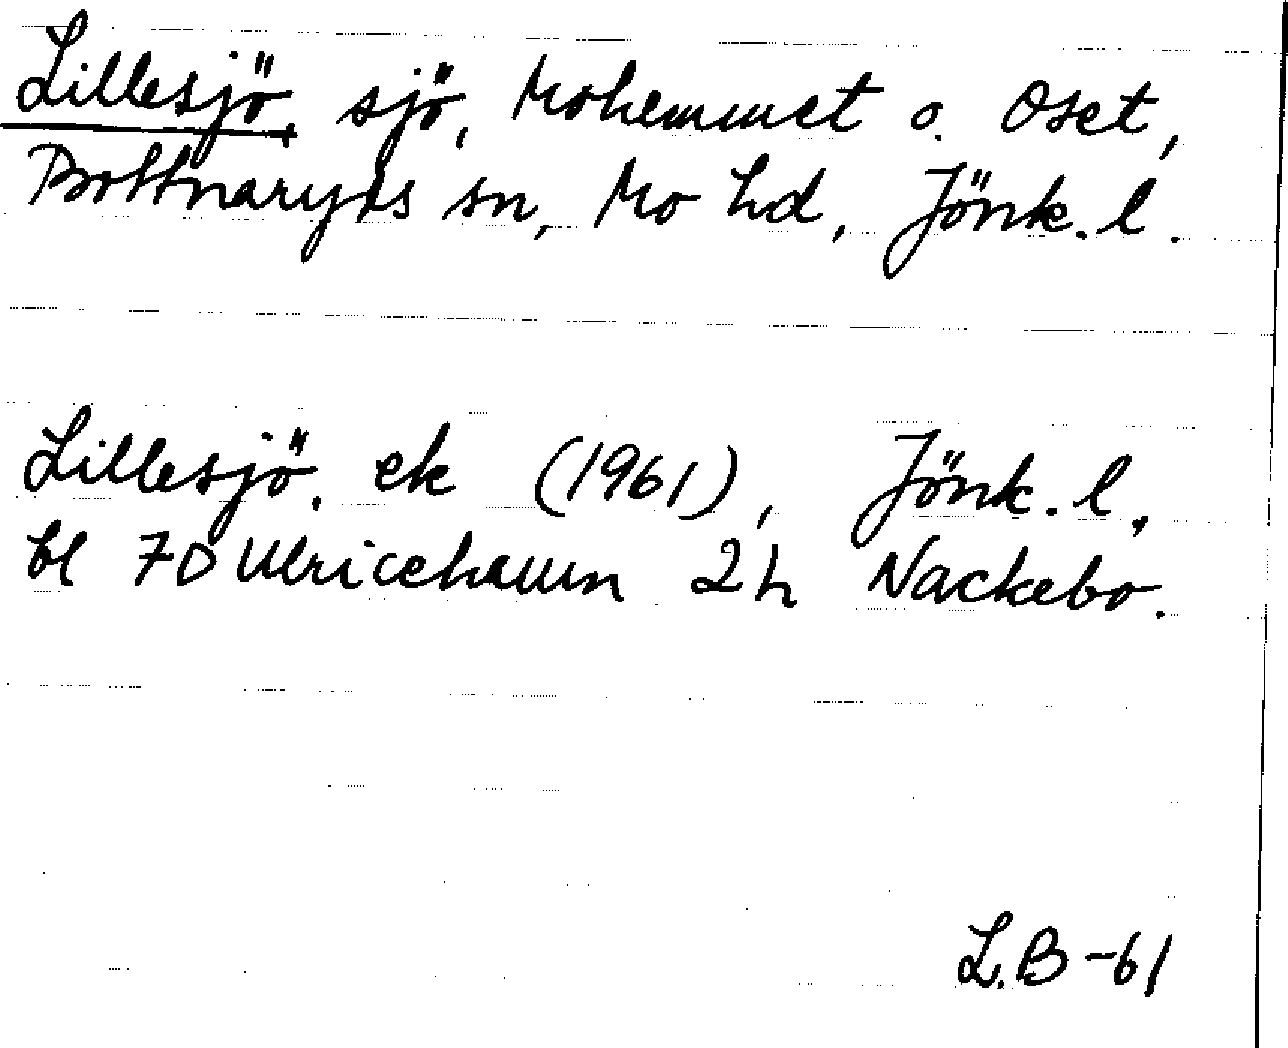 Lillesjö, sjö, Mohemmet o. Oset,
Bottnaryds sn, Mo hd, Jönk. l.
Lillesjö, ek (1961), Jönk. l.,
bl 7D Ulricehamn 2h Nackebo.
L.B -61